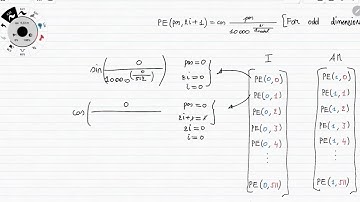 PE(pos, 2i+1) = cos pos / 10000^(2i/dmodel) [For odd dimension
I AM
sin( 0 / 10000^(0/512) ) pos = 0
2i = 0
i = 0
cos( 0 / pos = 0
2i+1 = 1
2i = 0
i = 0
PE(0,0) PE(1,0)
PE(0,1) PE(1,1)
PE(0,2) PE(1,2)
PE(0,3) PE(1,3)
PE(0,4) PE(1,4)
PE(0,511) PE(1,511)